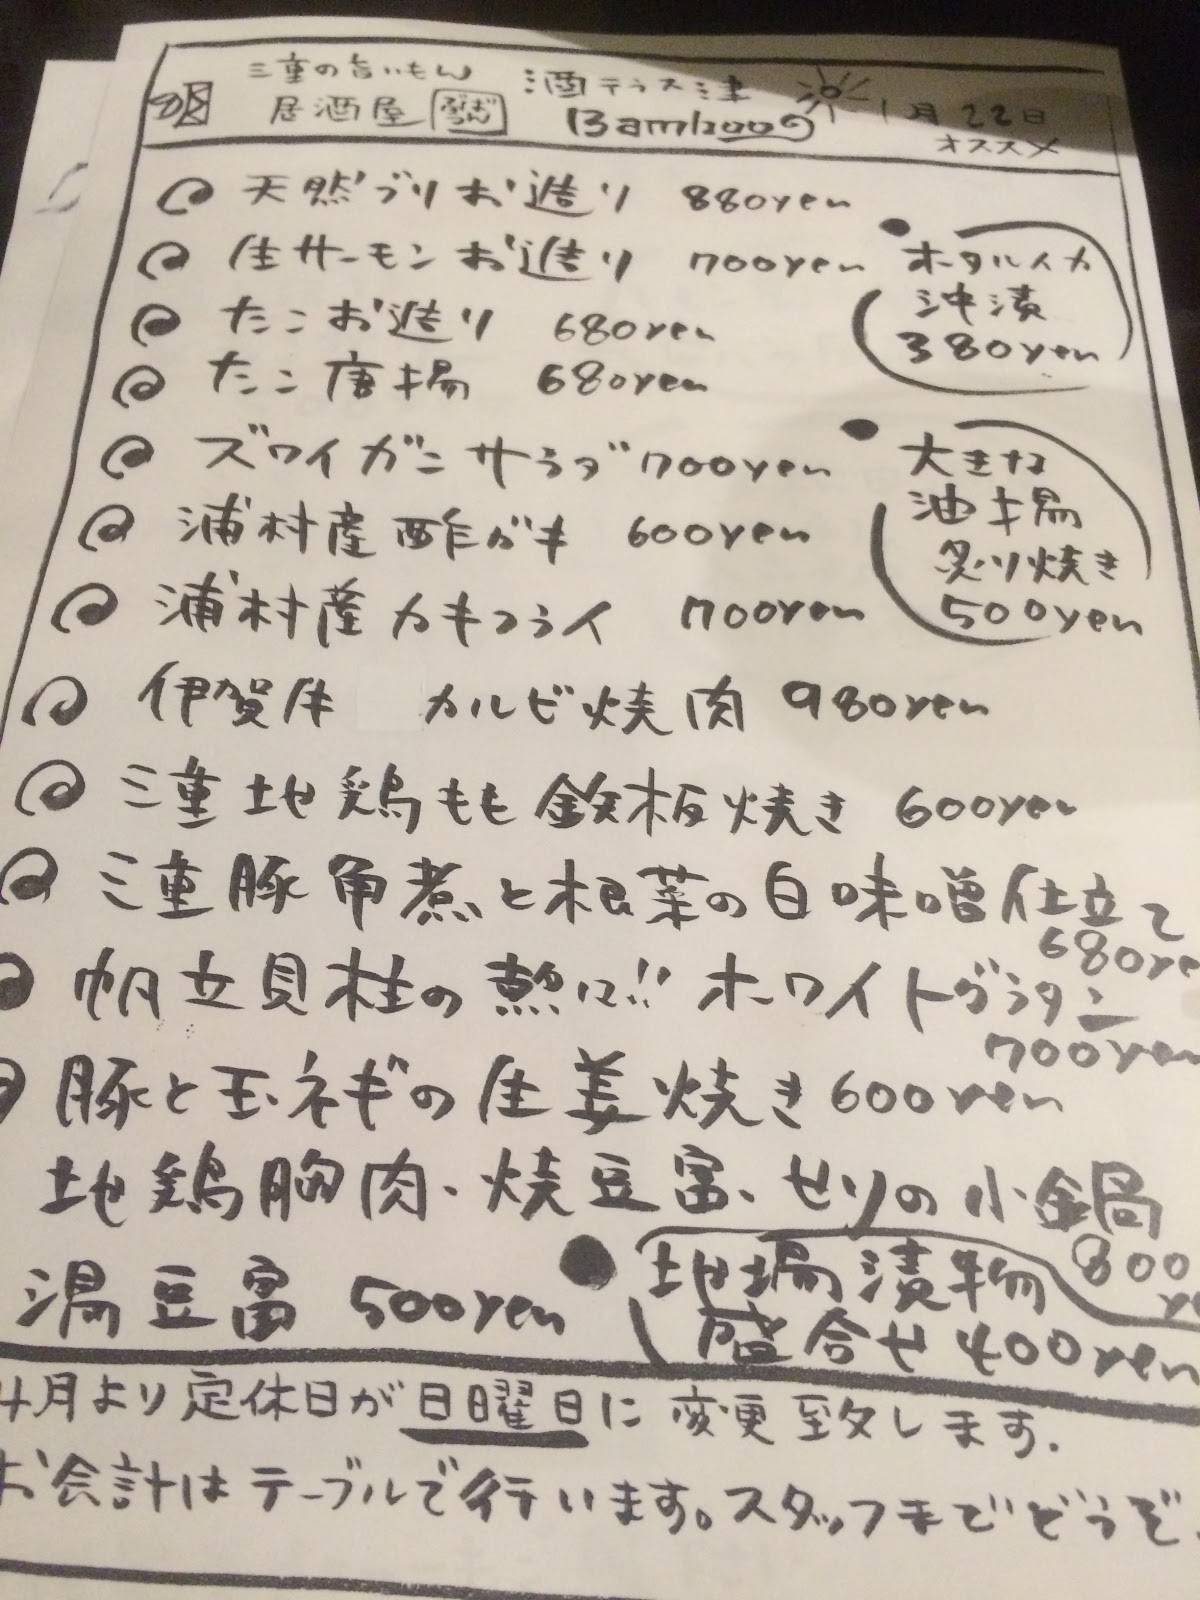 三重の旨いもん
居酒屋 ばんぶう
酒テラス津
Bamboo
1月22日
オススメ
天然ブリお造り 880yen
生サーモンお造り 700yen
たこお造り 680yen
たこ唐揚 680yen
ズワイガニサラダ 700yen
浦村産酢ガキ 600yen
浦村産カキフライ 700yen
伊賀牛 カルビ焼肉 980yen
三重地鶏もも鉄板焼き 600yen
三重豚角煮と根菜の白味噌仕立て
680ye
帆立貝柱の熱々!!ホワイトグラタン
700yen
豚と玉ネギの生姜焼き 600yen
地鶏胸肉、焼豆富、セリの小鍋
800
ye
湯豆富 500yen
ホタルイカ
沖漬
380yen
大きな
油揚
炙り焼き
500yen
地場漬物
盛合せ 400yen
4月より定休日が日曜日に変更致します.
お会計はテーブルで行います。スタッフまでどうぞ.